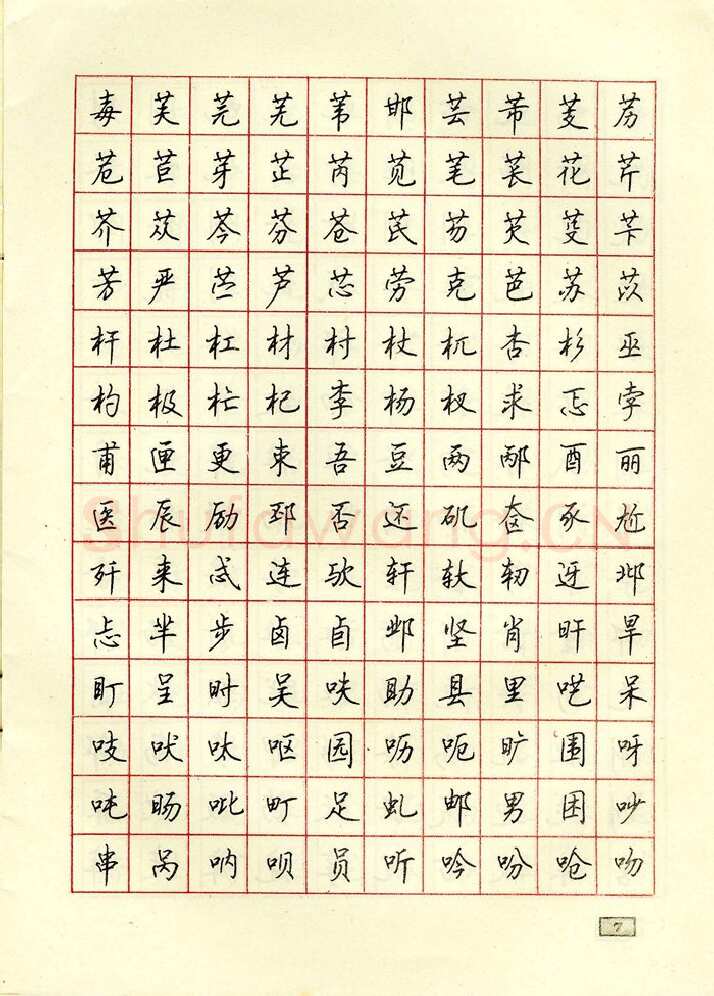 毐 芙 芫 芜 苇 邯 芸 芾 芰 苈
苊 苣 芽 芷 芮 苋 芼 苌 花 芹
芥 苁 芩 芬 苍 芪 芴 芡 芟 苄
芳 严 苎 芦 芯 劳 克 芭 苏 苡
杆 杜 杠 材 村 杖 杌 杏 杉 巫
杓 极 杧 杞 李 杨 杈 求 忑 孛
甫 匣 更 束 吾 豆 两 邴 酉 丽
医 辰 励 邳 否 还 矶 奁 豕 尬
Shufawang.CN
歼 来 忒 连 欤 轩 轪 轫 迓 邶
忐 芈 步 卤 卣 邺 坚 肖 旰 旱
盯 呈 时 吴 呋 助 县 里 呓 呆
吱 吠 呔 呕 园 呖 呃 旷 围 呀
吨 旸 吡 町 足 虬 邮 男 困 吵
串 呙 呐 呗 员 听 吟 吩 呛 吻
7